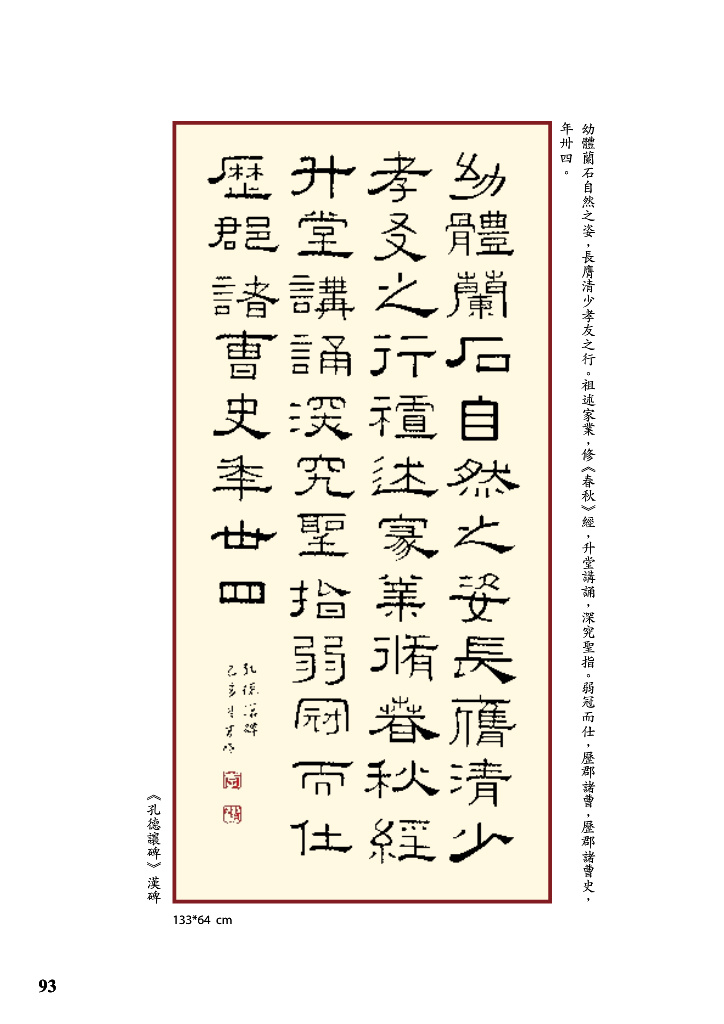 幼體蘭石自然之姿，長膺清少孝友之行。祖述家業，修《春秋》經，升堂講誦，深究聖指。弱冠而仕，歷郡諸曹，歷郡諸曹史，
年卅四。
幼體蘭石自然之姿長膺清少
孝友之行禃述家業脩春秋經
升堂講誦深究聖指弱冠而仕
歷郡諸曹史年丗四
《孔德讓碑》漢碑
133*64 cm
93